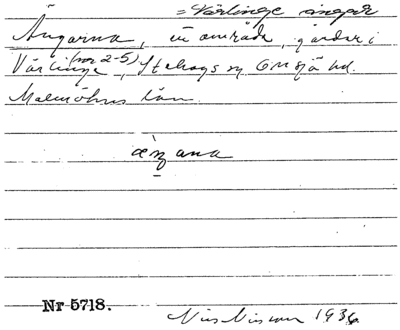 = Värlinge ängar
Ängarna, ett område, gårdar i
Värlinge (nor 2-5), Stehags sn Onsjö hd.
Malmöhus län.
æŋana
Nr 5718.
Nils Nilsson 1936